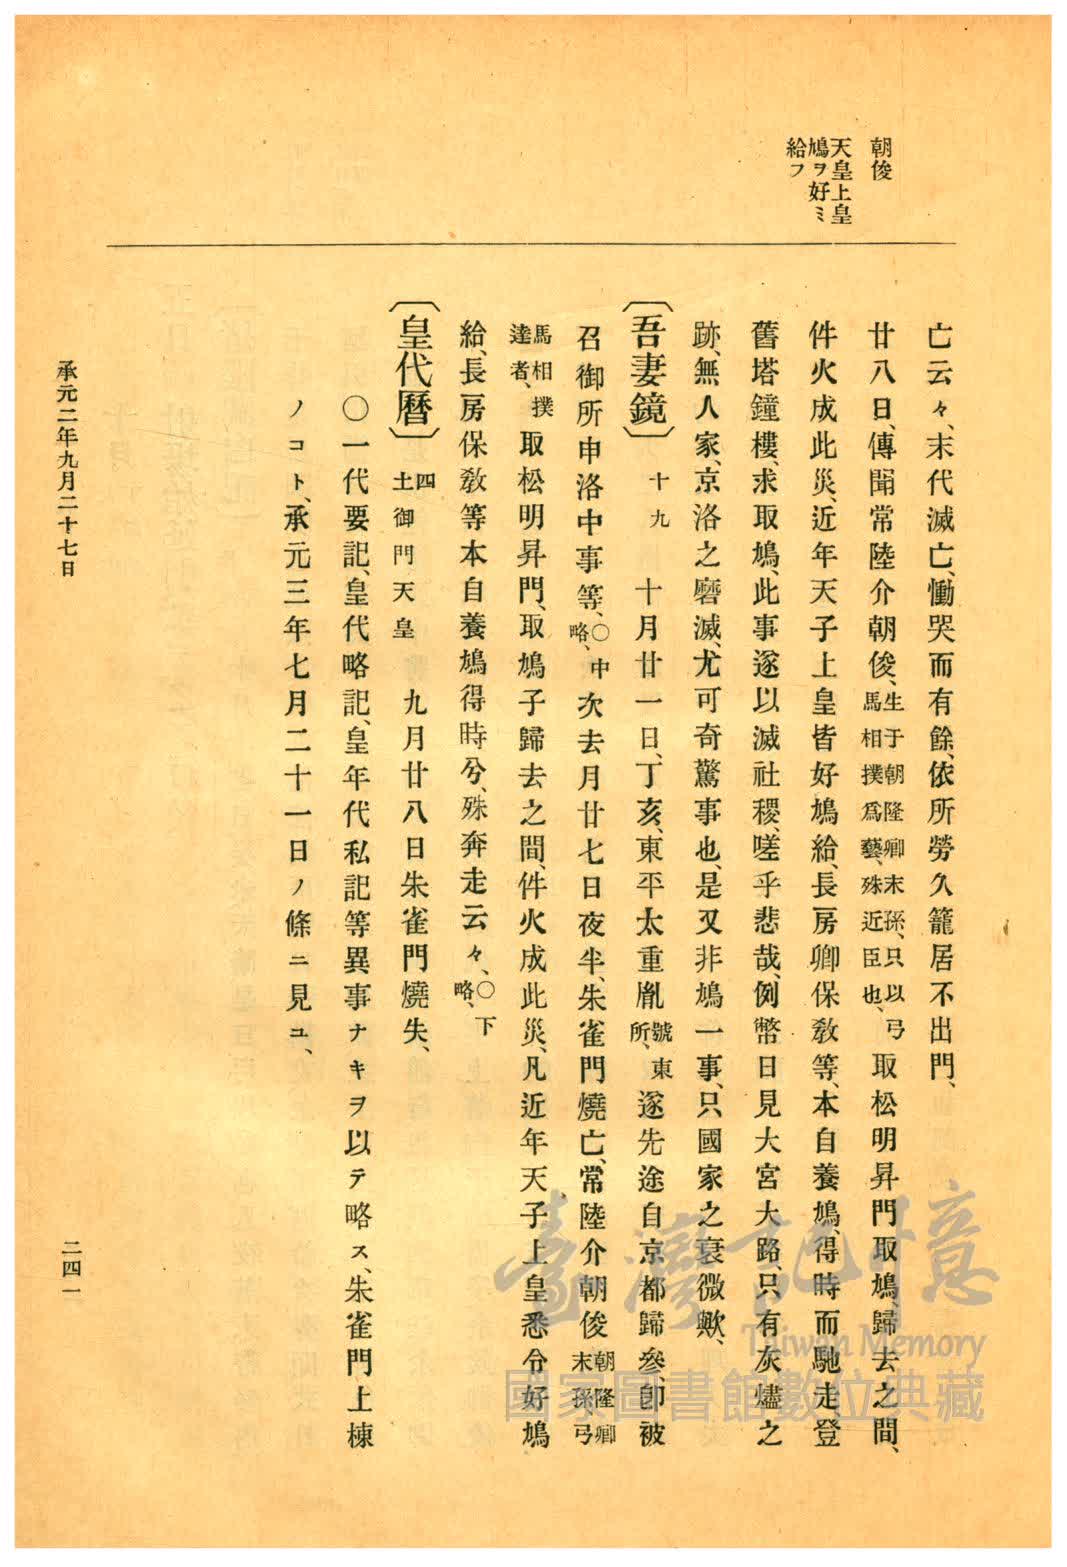 朝俊
天皇上皇
鳩ヲ好ミ
給フ
亡云々、末代滅亡、慟哭而有餘、依所勞久籠居不出門、
廿八日、傳聞常陸介朝俊、生于朝隆卿末孫、只以弓馬相撲爲藝、殊近臣也、取松明昇門取鳩、歸去之間、
件火成此災、近年天子上皇皆好鳩給、長房卿保敎等、本自養鳩、得時而馳走、登
舊塔鐘樓、求取鳩、此事遂以滅社稷、嗟乎悲哉、例幣日見大宮大路、只有灰燼之
跡、無人家、京洛之磨滅、尤可奇驚事也、是又非鳩一事、只國家之衰微歟、
〔吾妻鏡〕十九 十月廿一日、丁亥、東平太重胤號東所、遂先途自京都歸參、卽被
召御所申洛中事等、〇中略、次去月廿七日夜半、朱雀門燒亡、常陸介朝俊朝隆卿末孫、弓
馬相撲達者、取松明昇門、取鳩子歸去之間、件火成此災、凡近年天子上皇悉令好鳩
給、長房保敎等本自養鳩得時兮、殊奔走云々、〇下略、
〔皇代曆〕四土御門天皇 九月廿八日朱雀門燒失、
〇一代要記、皇代略記、皇年代私記等異事ナキヲ以テ略ス、朱雀門上棟
ノコト、承元三年七月二十一日ノ條ニ見ユ、
承元二年九月二十七日
二四一
臺灣記憶
Taiwan Memory
國家圖書館數位典藏